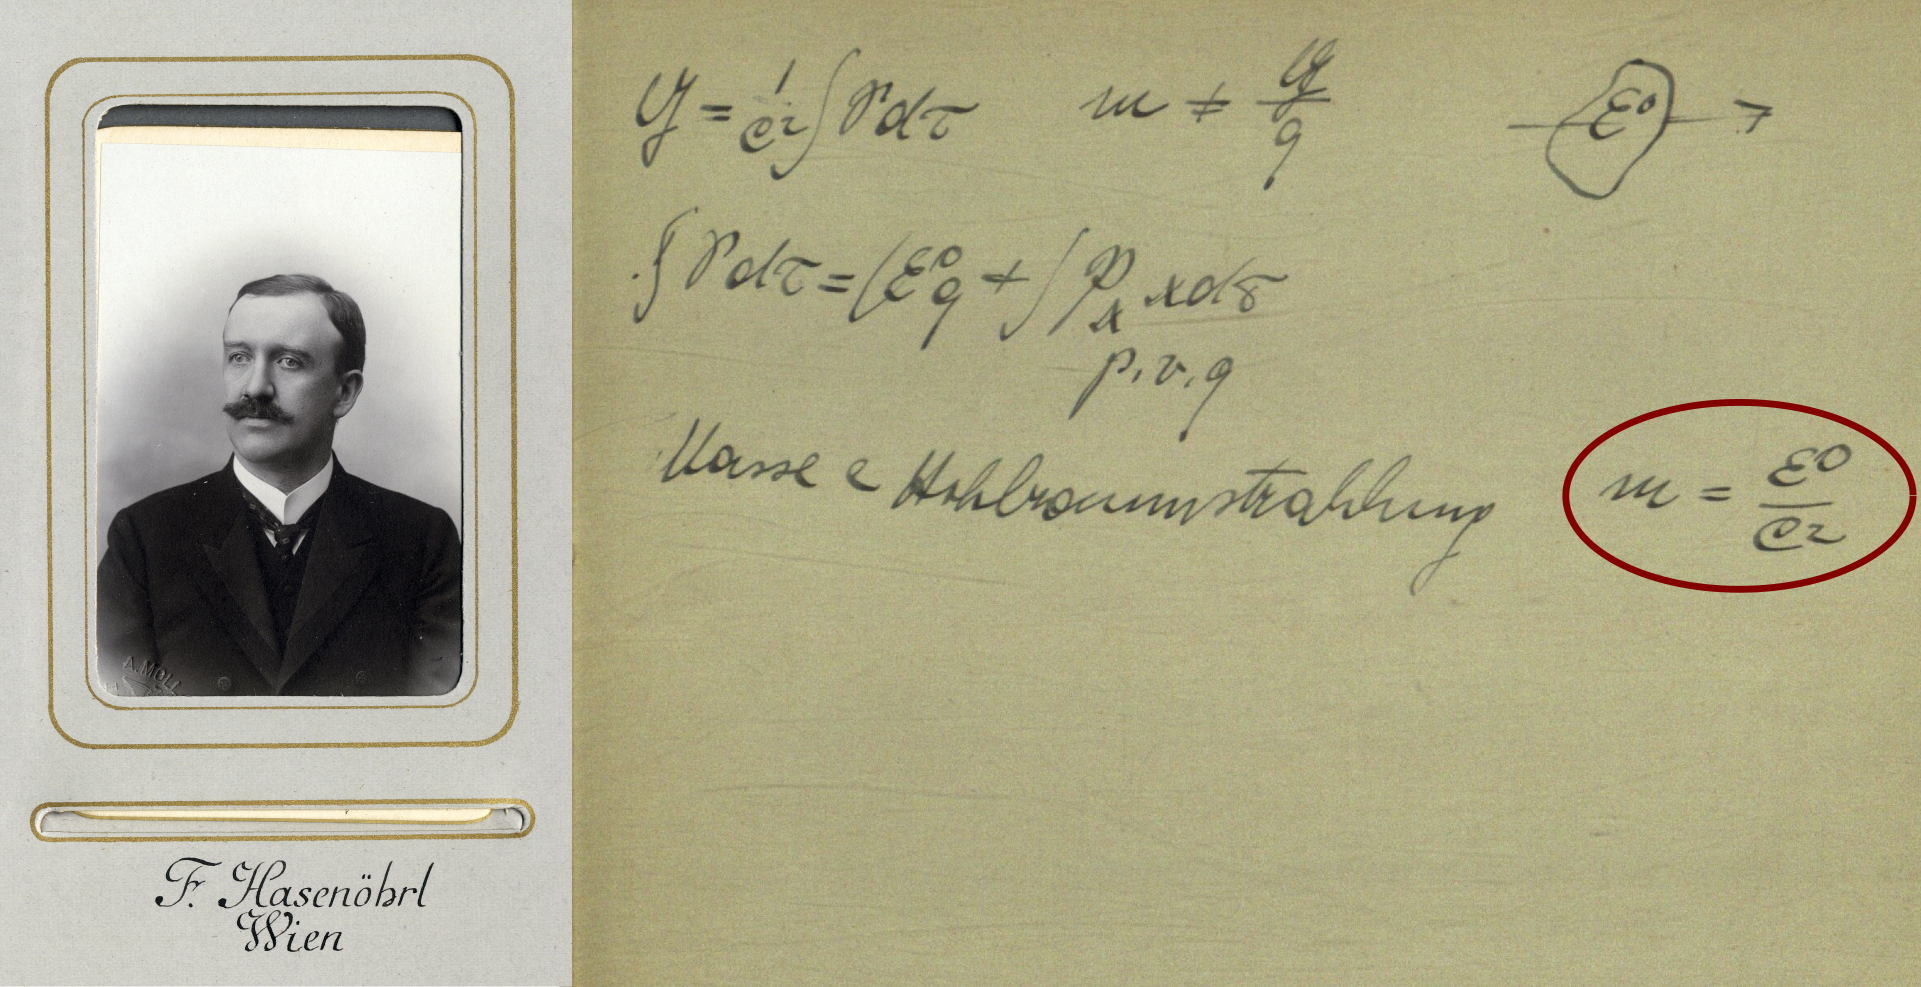 A. MOLL
F. Hasenöhrl
Wien
y = 1/c² ∫ γ dτ   m ≠ y/q   ε⁰ →
∫ γ dτ = (ε⁰q + ∫ pₓ x dσ
p. v. q
Masse e Hohlraumstrahlung   m = ε⁰/c²